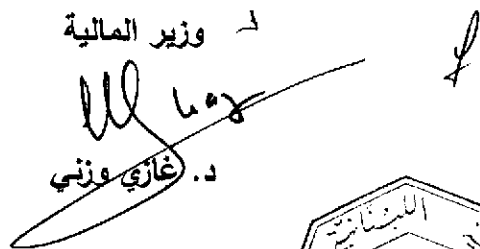 وزير المالية
د. غازي وزني
اللبنانية